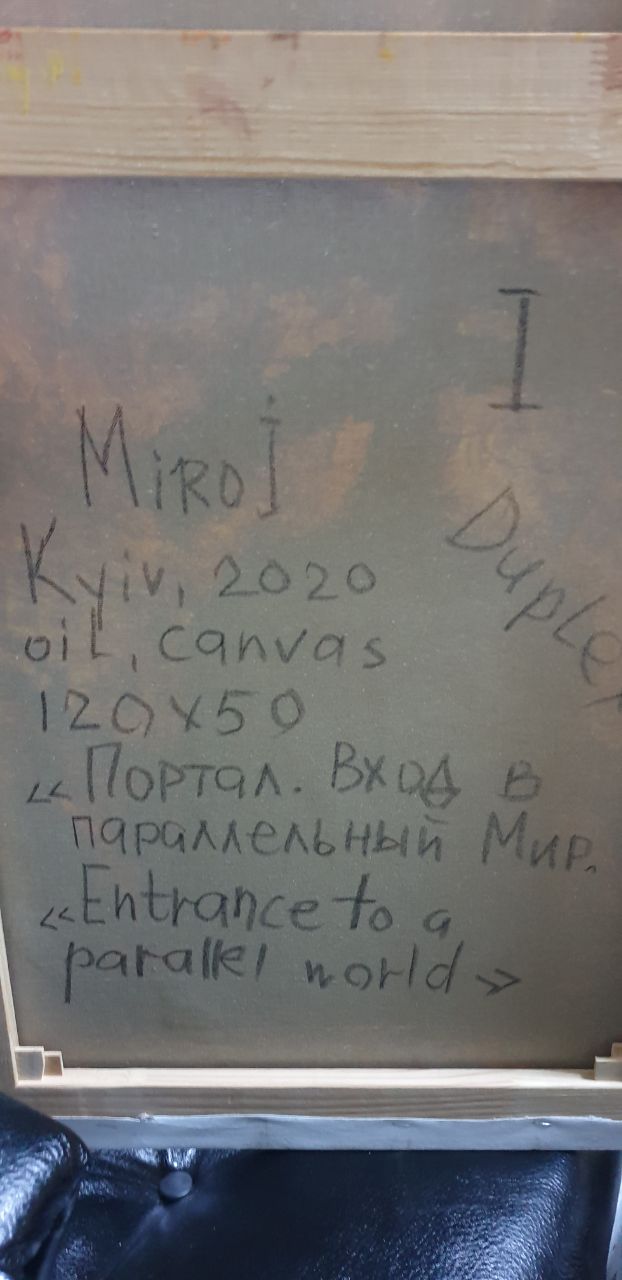 I
Miroj
Duplex
Kyiv, 2020
oil, canvas
120x50
«Портал. Вход в
параллельный Мир.
«Entrance to a
parallel world»